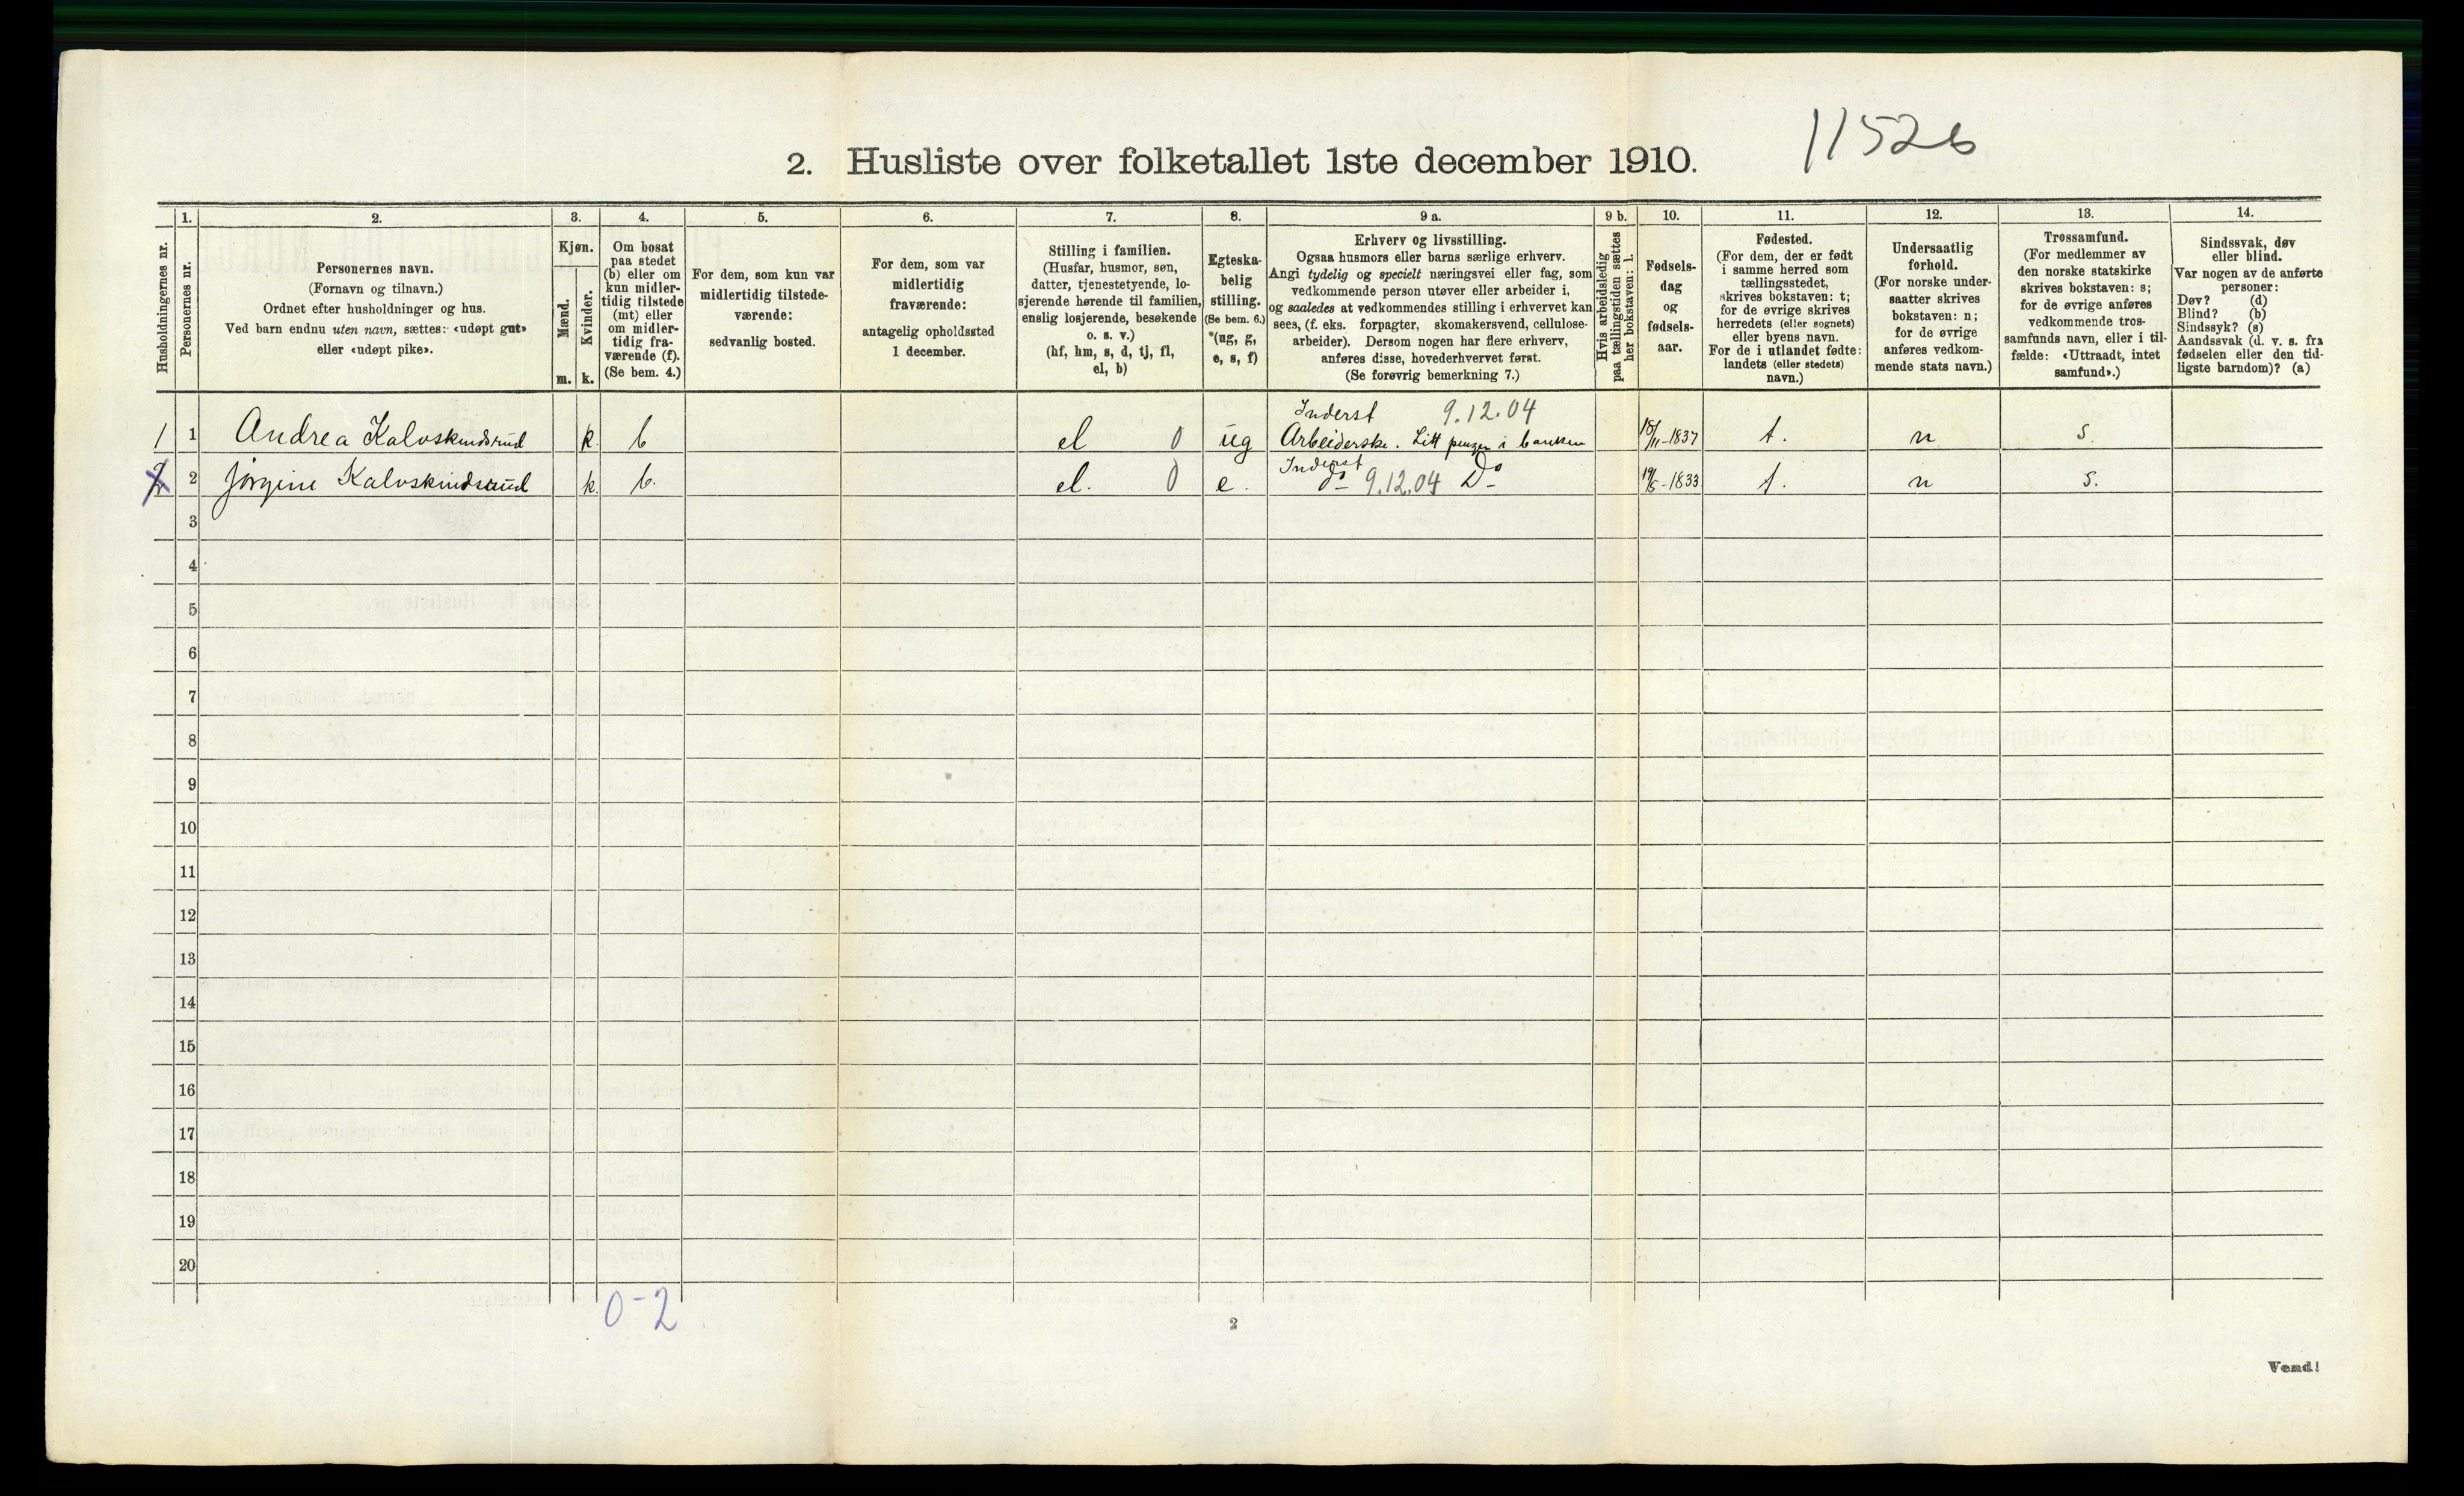 11526
2. Husliste over folketallet 1ste december 1910.
Husholdningernes nr.
1.
Personernes nr.
2.
Personernes navn.
(Fornavn og tilnavn.)
Ordnet efter husholdninger og hus.
Ved barn endnu uten navn, sættes: «udøpt gut»
eller «udøpt pike».
3.
Kjøn.
Mænd.
m.
Kvinder.
k.
4.
Om bosat
paa stedet
(b) eller om
kun midler-
tidig tilstede
(mt) eller
om midler-
tidig fra-
værende (f).
(Se bem. 4.)
5.
For dem, som kun var
midlertidig tilstede-
værende:
sedvanlig bosted.
6.
For dem, som var
midlertidig
fraværende:
antagelig opholdssted
1 december.
7.
Stilling i familien.
(Husfar, husmor, søn,
datter, tjenestetyende, lo-
sjerende hørende til familien,
enslig losjerende, besøkende
o. s. v.)
(hf, hm, s, d, tj, fl,
el, b)
8.
Egteska-
belig
stilling.
(Se bem. 6.)
(ug, g,
e, s, f)
9 a.
Erhverv og livsstilling.
Ogsaa husmors eller barns særlige erhverv.
Angi tydelig og specielt næringsvei eller fag, som
vedkommende person utøver eller arbeider i,
og saaledes at vedkommendes stilling i erhvervet kan
sees, (f. eks. forpagter, skomakersvend, cellulose-
arbeider). Dersom nogen har flere erhverv,
anføres disse, hovederhvervet først.
(Se forøvrig bemerkning 7.)
9 b.
Hvis arbeidsledig
paa tællingstiden sættes
her bokstaven: l.
10.
Fødsels-
dag
og
fødsels-
aar.
11.
Fødested.
(For dem, der er født
i samme herred som
tællingsstedet,
skrives bokstaven: t;
for de øvrige skrives
herredets (eller sognets)
eller byens navn.
For de i utlandet fødte:
landets (eller stedets)
navn.)
12.
Undersaatlig
forhold.
(For norske under-
saatter skrives
bokstaven: n;
for de øvrige
anføres vedkom-
mende stats navn.)
13.
Trossamfund.
(For medlemmer av
den norske statskirke
skrives bokstaven: s;
for de øvrige anføres
vedkommende tros-
samfunds navn, eller i til-
fælde: «Uttraadt, intet
samfund».)
14.
Sindssvak, døv
eller blind.
Var nogen av de anførte
personer:
Døv? (d)
Blind? (b)
Sindssyk? (s)
Aandssvak (d. v. s. fra
fødselen eller den tid-
ligste barndom)? (a)
Inderst 9.12.04
1 1 Andrea Kalvskindsrud k. b el 0 ug Arbeiderske. Litt penger i banken 18/11-1837 t. n s.
Inderst
2 2 Jörgine Kalvskindsrud k. b. el. 0 e. do 9.12.04 Do 19/5-1833 t. n s.
3
4
5
6
7
8
9
10
11
12
13
14
15
16
17
18
19
20
0-2
2
Vend!